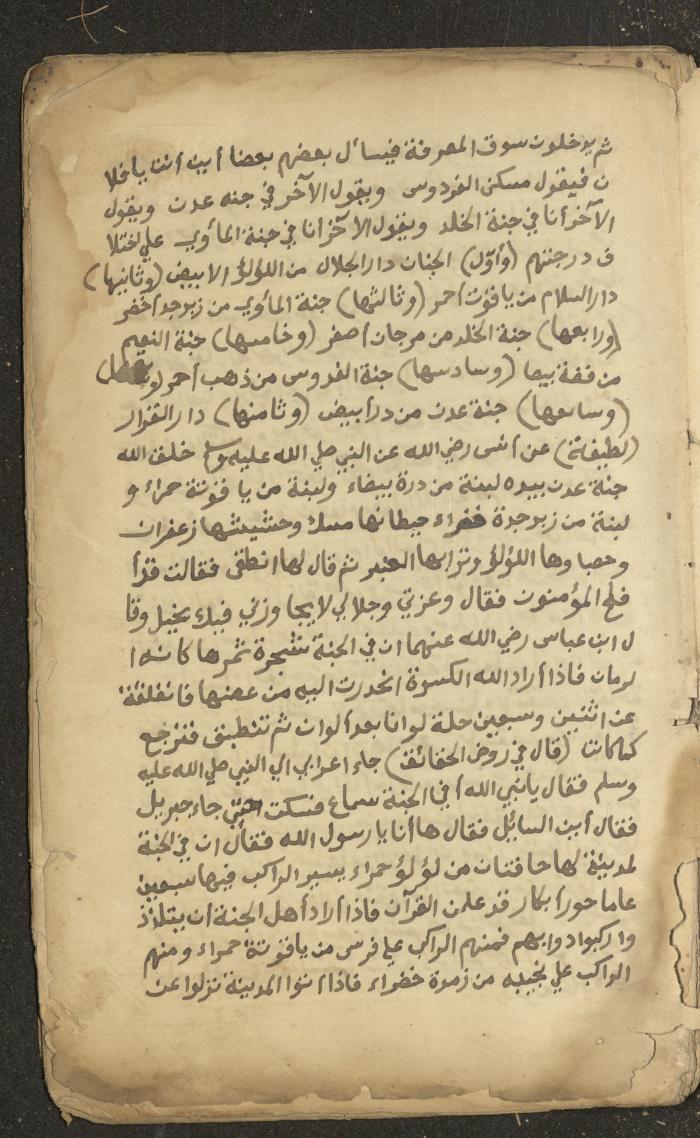 ثم يدخلون سوق المعرفة فيسأل بعضهم بعضا أين أنت يا فلا
ن فيقول مسكن الفردوس ويقول الآخر في جنه عدن ويقول
الآخر أنا في جنة الخلد ويقول الآخر أنا في جنة المأوي علي اختلا
ف درجتهم (وأول) الجنان دار الجلال من اللؤلؤ الابيض (وثانيها)
دار السلام من ياقوت احمر (وثالثها) جنة المأوي من زبرجد أخضر
(ورابعها) جنة الخلد من مرجان اصفر (وخامسها) جنة النعيم
من فضة بيضا (وسادسها) جنة الفدوس من ذهب أحمر
(وسابعها) جنة عدن من در أبيض (وثامنها) دار القرار
(لطيفة) عن أنس رضي الله عن النبي صلي الله عليه خلق الله
جنة عدن بيده لبنة من درة بيضاء ولبنة من ياقوتة حمراء و
لبنة من زبرجدة خضراء حيطانها مسك وحشيشها زعفران
وحصباوها اللؤلؤ وترابها العنبر ثم قال لها انطقي فقالت قد أ
فلح المؤمنون فقال وعزتي وجلالي لا يجاوزني فيك بخيل وقا
ل ابن عباس رضي الله عنهما ان في الجنة شجرة ثمرها كانه ا
لرمان فاذا أراد الله الكسوة انحدرت اليه من غصنها فانفلقة
عن اثنين وسبعين حلة لوانا بعد ألوان ثم تنطبق فترجع
كما كانت (قال في روض الحقائق) جاء اعرابي الي النبي صلي الله عليه
وسلم فقال يا نبي الله أفي الجنة سماع فسكت حتي جاء جبريل
فقال أين السائل فقال ها أنا يا رسول الله فقال ان في الجنة
لمدينة لها حافتان من لؤلؤ حمراء يسير الراكب فيها سبعين
عاما حور أبكار قد علمن القرآن فاذا أراد أهل الجنة ان يتلذذ
وا ركبوا دوابهم فمنهم الراكب علي فرس من ياقوتة حمراء ومنهم
الراكب علي نجيبه من زمرة خضراء فاذا اتوا المدينة نزلوا عن